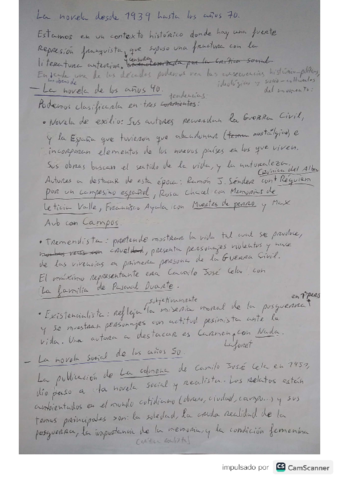 La novela desde 1939 hasta los años 70.
Estamos en un contexto histórico donde hay una fuerte
represión franquista, que supuso una fractura con la
literatura anterior,
- La novela de los años 40.
tendencias
Podemos clasificarla en tres corrientes:
• Novela de exilio: Sus autores recuerdan la Guerra Civil,
y la España que tuvieron que abandonar (tono nostálgico) e
incorporan elementos de los nuevos países en los que viven.
Sus obras buscan el sentido de la vida, y la naturaleza.
Autores a destacar de esta época: Ramón J. Sénder con Réquiem
Crónica del Alba
por un campesino español, Rosa Chacel con Memorias de
Leticia Valle, Francisco Ayala con Muertes de perro y Max
Aub con Campos
• Tremendista: pretende mostrar la vida tal cual se produce,
crueldad, presenta personajes violentos y nace
de las vivencias en primera persona de la Guerra Civil.
El máximo representante era Camilo José Cela con
La familia de Pascual Duarte.
• Existencialista: refleja la miseria moral de la posguerra,
y se muestran personajes con actitud pesimista ante la
vida. Una autora a destacar es Carmen con Nada.
Laforet
- La novela social de los años 50
La publicación de La colmena de Camilo José Cela en 1951,
dio paso a la novela social y realista. Los relatos están
ambientados en el mundo cotidiano (obrero, ciudad, campo...) y sus
temas principales son la soledad, la cruda realidad de la
posguerra, la importancia de la memoria y la condición femenina
impulsado por CS CamScanner